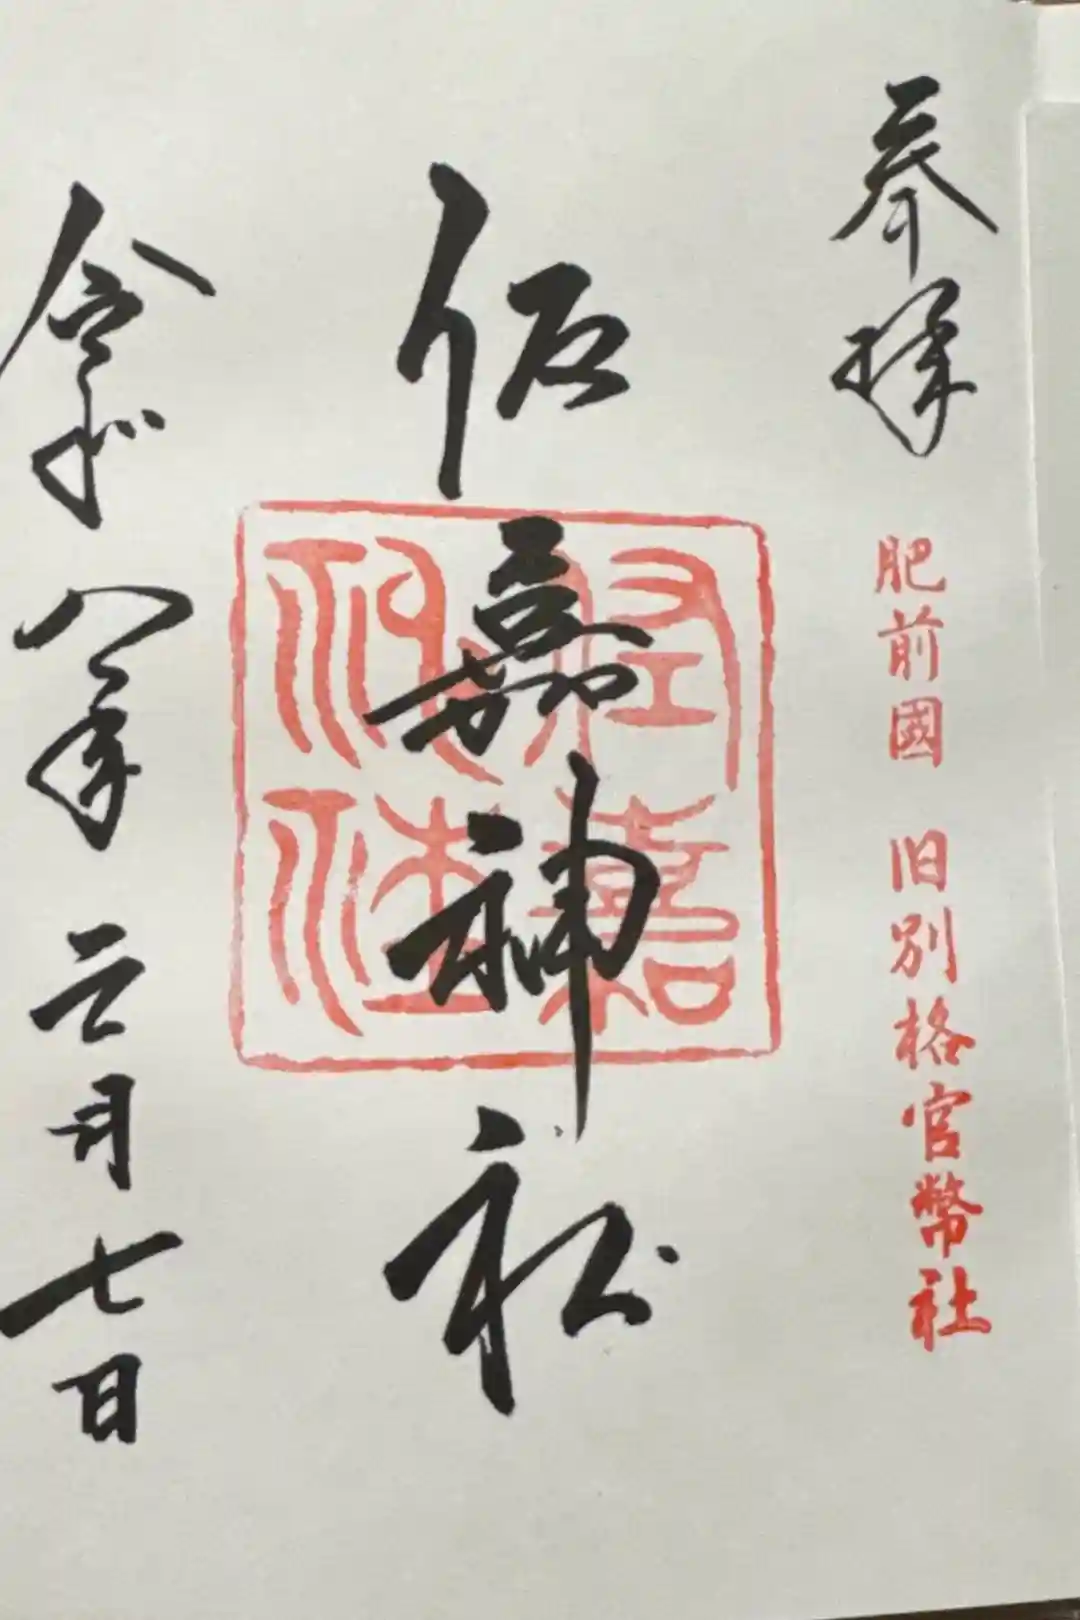 奉拝
肥前國 旧別格官幣社
佐嘉神社
佐嘉
神社
令和八年三月七日